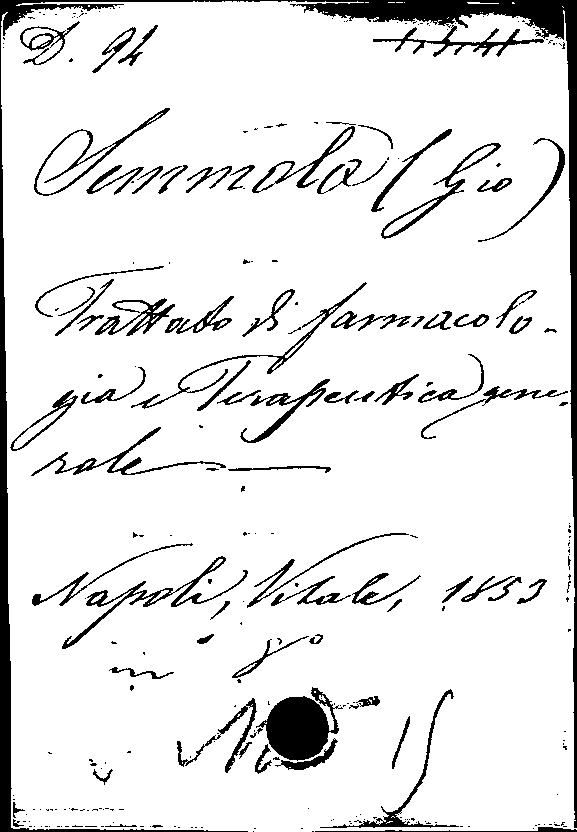 D. 94
Semmola (Gio)
Trattato di farmacolo-
gia e Terapeutica gene-
rale
Napoli, Vitale, 1853
in 8º
15